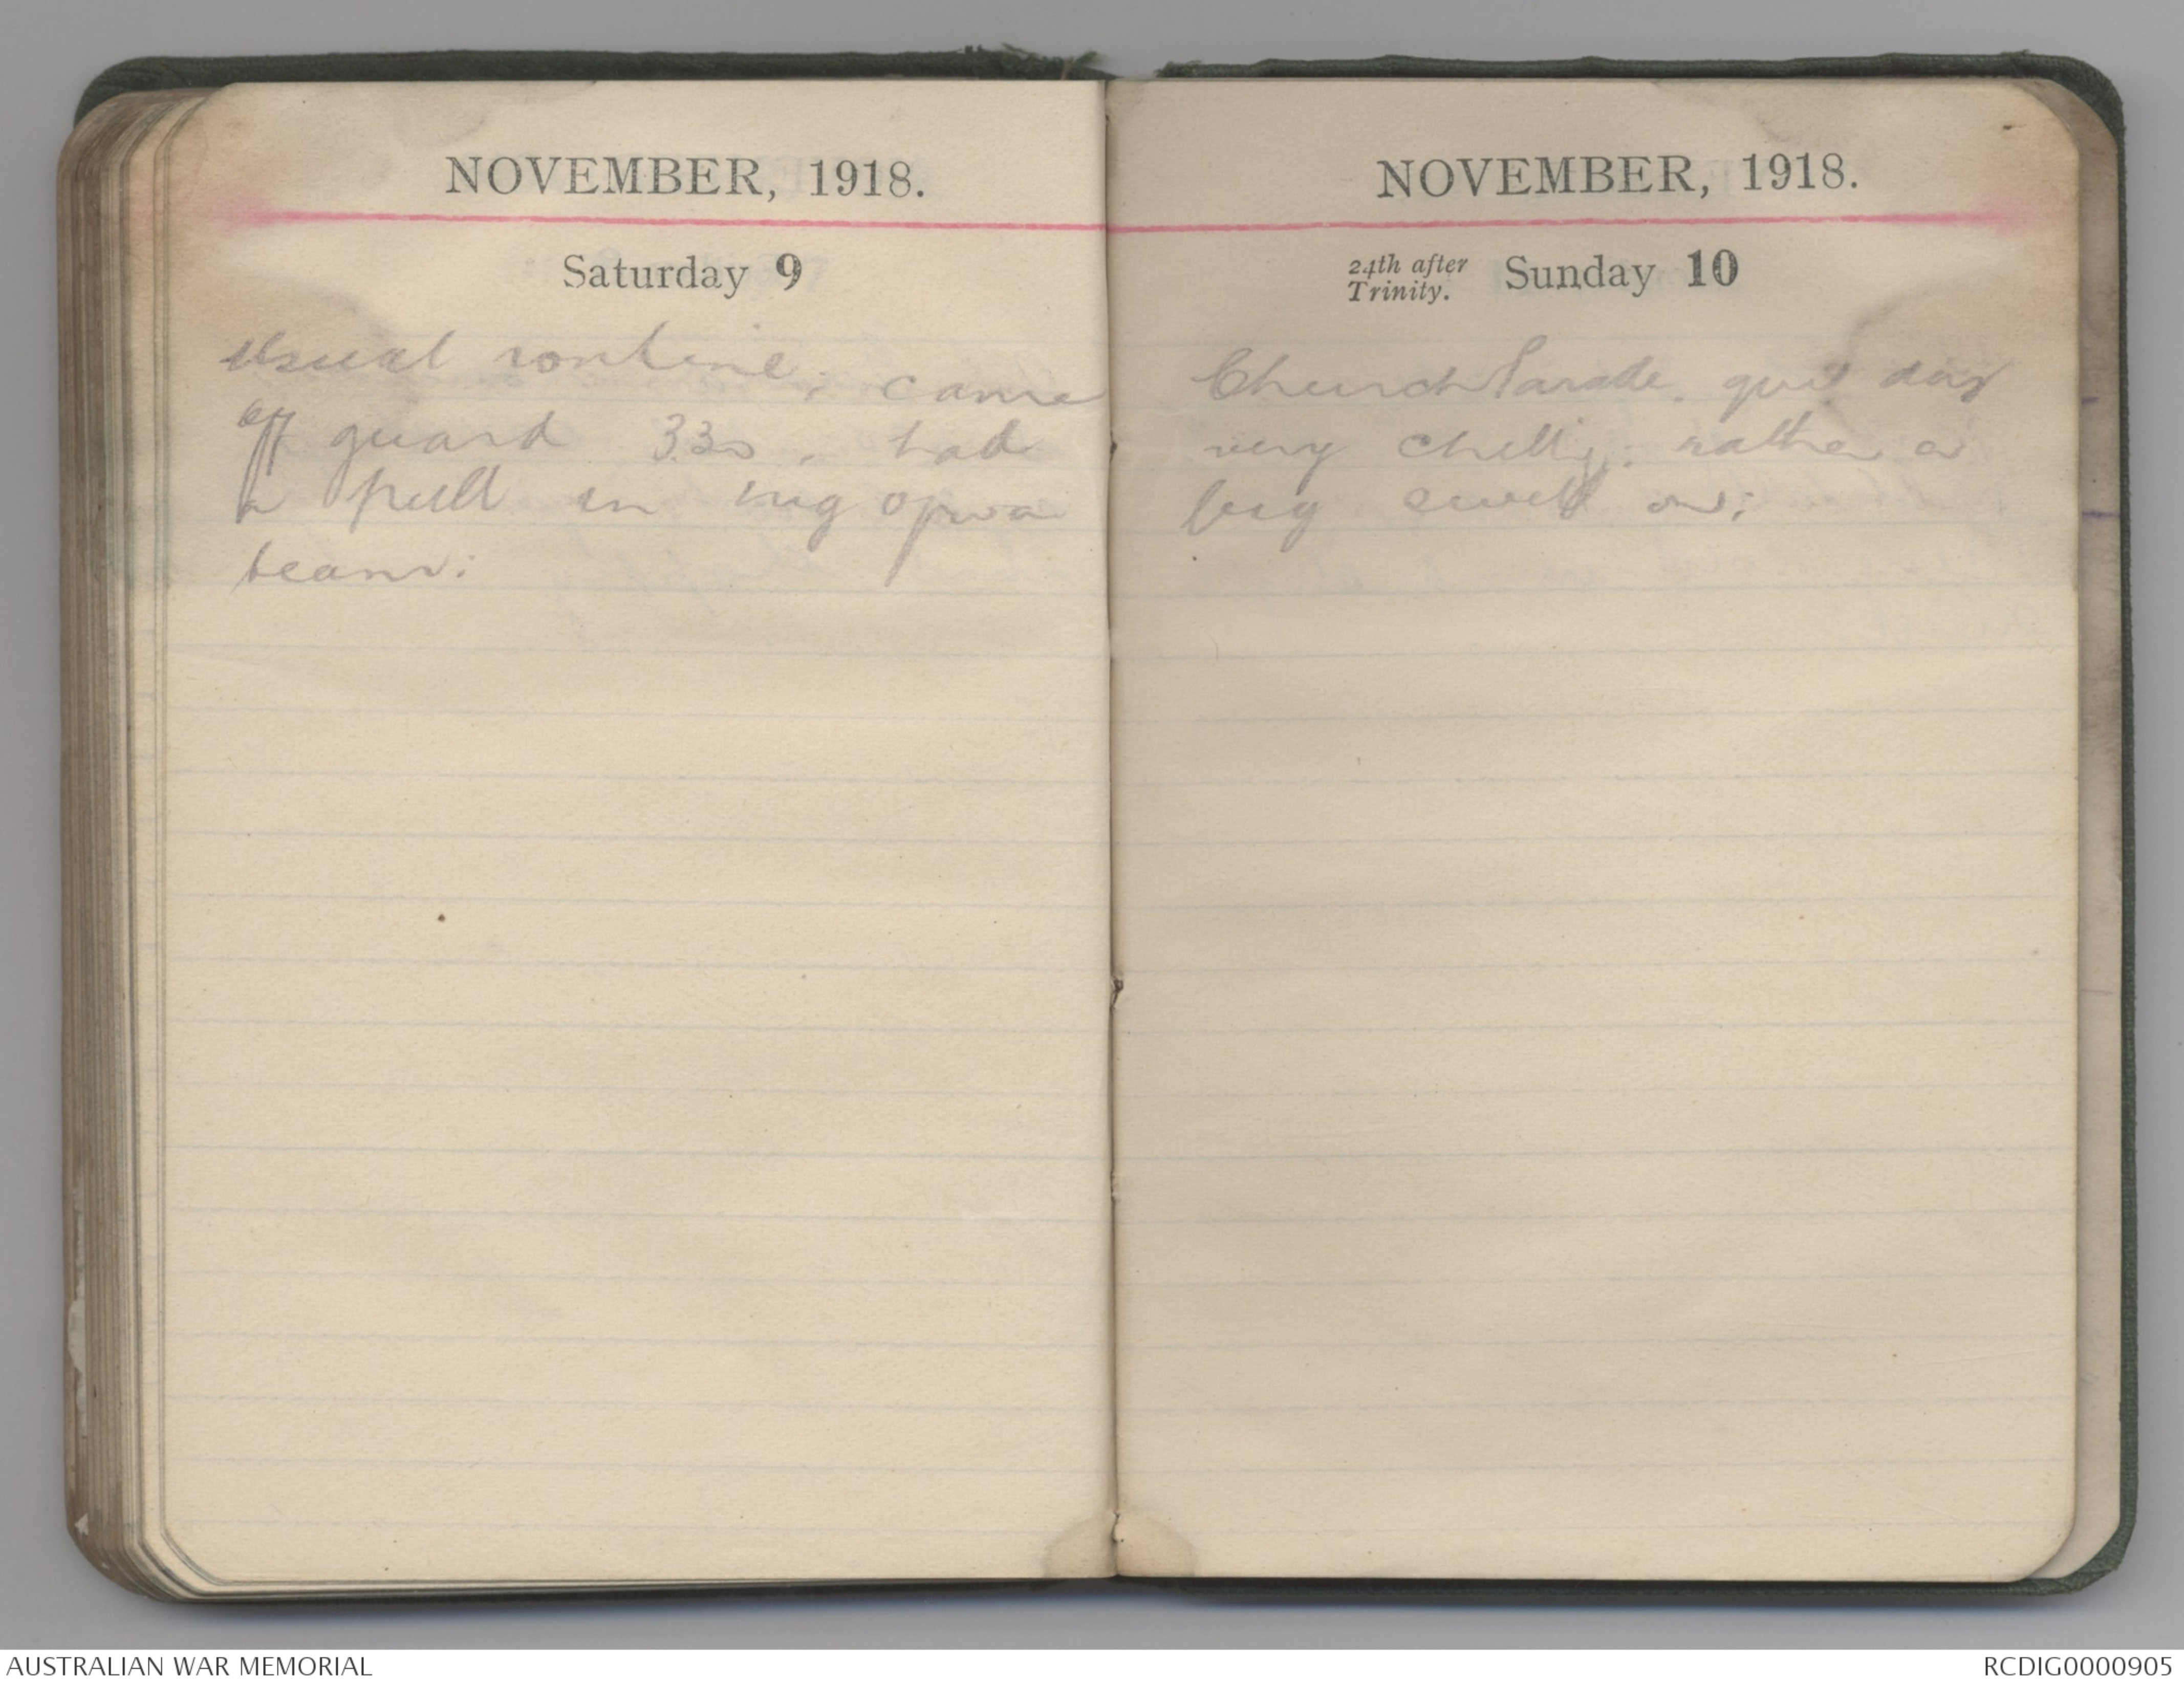 NOVEMBER, 1918.
Saturday 9
Usual routine, came
off guard 3.30. had
a pull in tug of war
team:
NOVEMBER, 1918.
24th after
Trinity.
Sunday 10
Church Parade. quit day
very chilly. rather a
big swell on;
AUSTRALIAN WAR MEMORIAL
RCDIG0000905